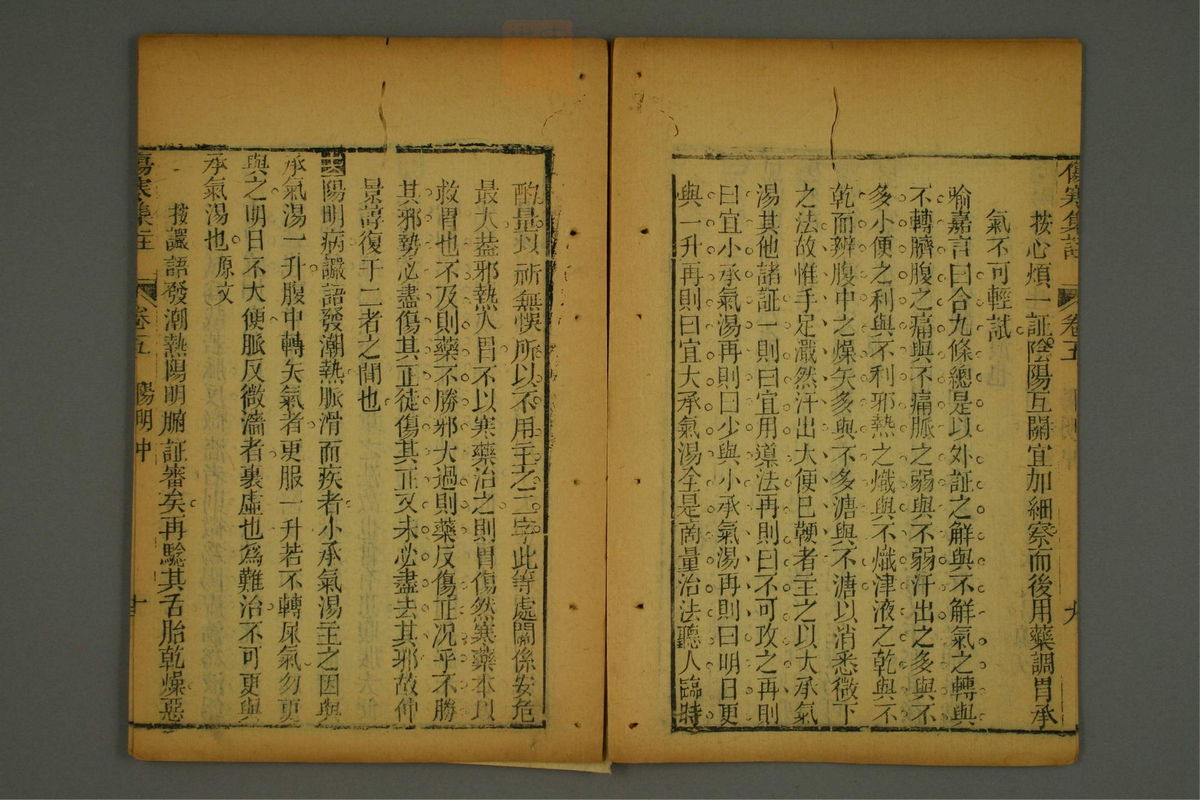 傷寒集註 卷五 九
按心煩一証陰陽互關宜加細察而後用藥調胃承
氣不可輕試
喻嘉言曰合九條總是以外証之解與不解氣之轉與
不轉臍腹之痛與不痛脈之弱與不弱汗出之多與不
多小便之利與不利邪熱之熾與不熾津液之乾與不
乾而辨腹中之燥矢多與不多溏與不溏以消悉微下
之法故惟手足濈然汗出大便已鞕者主之以大承氣
湯其他諸証一則曰宜用導法再則曰不可攻之再則
曰宜小承氣湯再則曰少與小承氣湯再則曰明日更
與一升再則曰宜大承氣湯全是商量治法聽人臨時
酌量以祈無悞所以不用主之二字此等處關係安危
最大葢邪熱入胃不以寒藥治之則胃傷然寒藥本以
救胃也不及則藥不勝邪大過則藥反傷正况乎不勝
其邪勢必盡傷其正徒傷其正又未必盡去其邪故仲
景諄復于二者之間也
陽明病讝語發潮熱脈滑而疾者小承氣湯主之因與
承氣湯一升腹中轉矢氣者更服一升若不轉屎氣勿更
與之明日不大便脈反微濇者裏虛也為難治不可更與
承氣湯也 原文
按讝語發潮熱陽明腑証審矣再驗其舌胎乾燥惡
傷寒集註 卷五 陽明中 十